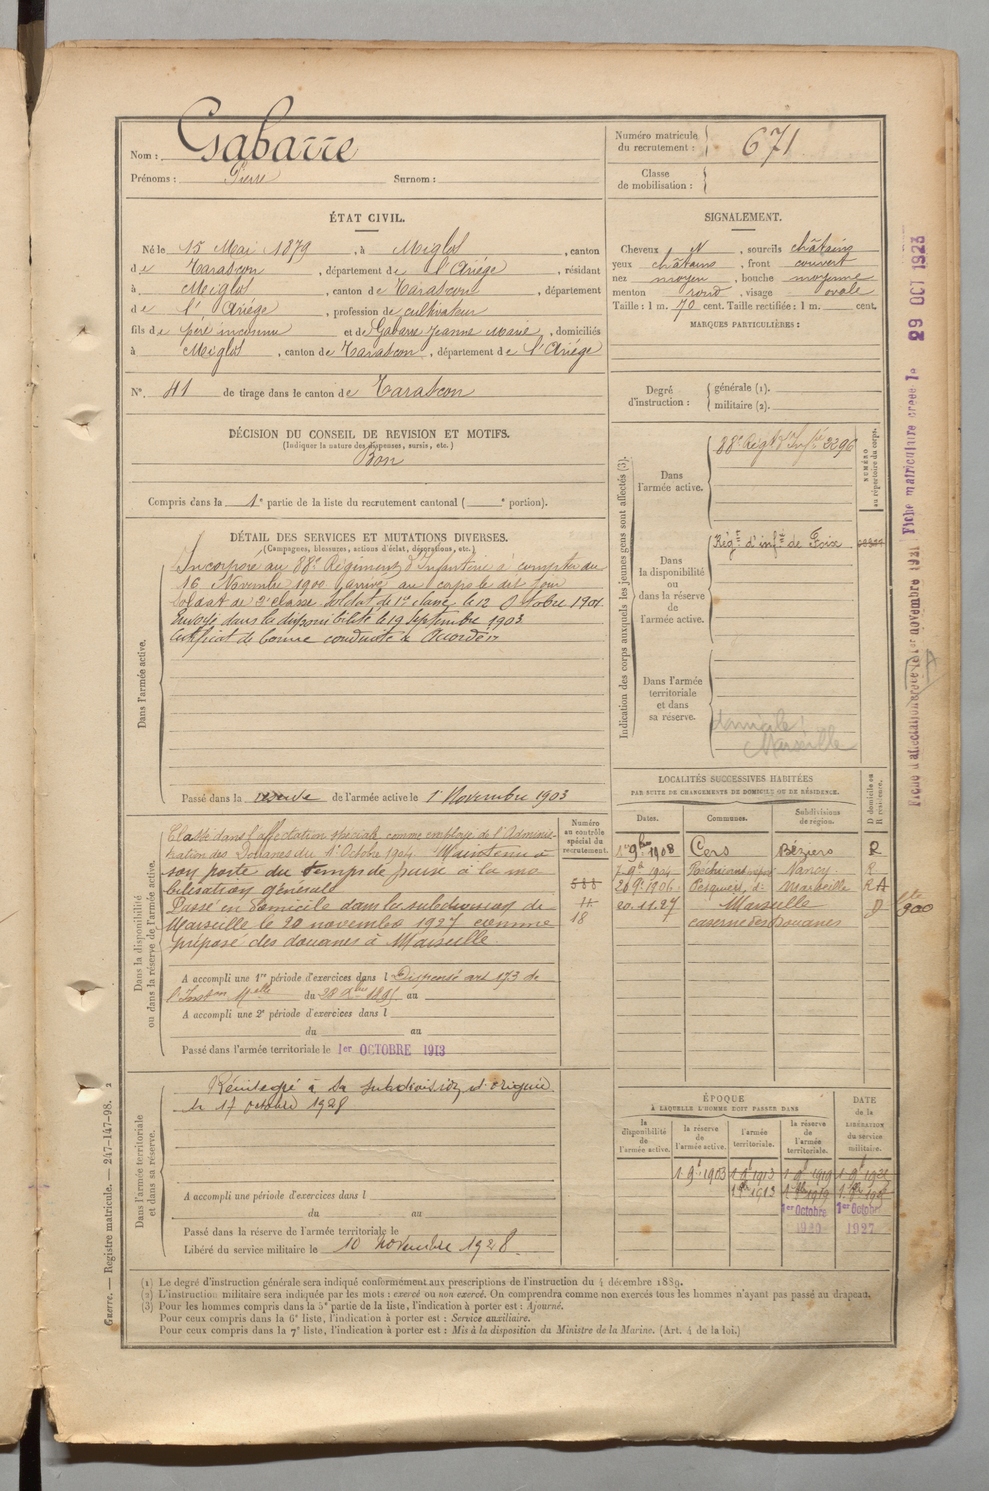 Nom : Gabarre
Prénoms : Pierre Surnom :
Numéro matricule du recrutement : 671
Classe de mobilisation :
ÉTAT CIVIL.
Né le 15 Mai 1879, à Miglos, canton
de Tarascon, département de l'Ariége, résidant
à Miglos, canton de Tarascon, département
de l'Ariége, profession de cultivateur
fils de père inconnu et de Gabarre Jeanne Marie, domiciliés
à Miglos, canton de Tarascon, département de l'Ariége
N°. 41 de tirage dans le canton de Tarascon
SIGNALEMENT.
Cheveux N, sourcils châtains
yeux châtains, front couvert
nez moyen, bouche moyenne
menton rond, visage ovale
Taille : 1 m. 70 cent. Taille rectifiée : 1 m. cent.
MARQUES PARTICULIÈRES :
Degré d'instruction : générale (1).
militaire (2).
DÉCISION DU CONSEIL DE REVISION ET MOTIFS.
(Indiquer la nature des dispenses, sursis, etc.)
Bon
Compris dans la 1e partie de la liste du recrutement cantonal ( e portion).
DÉTAIL DES SERVICES ET MUTATIONS DIVERSES.
(Campagnes, blessures, actions d'éclat, décorations, etc.)
Dans l'armée active.
Incorporé au 88e Régiment d'Infanterie à compter du
16 Novembre 1900. arrivé au corps le dit jour
soldat de 2e classe. soldat de 1re classe le 12 Octobre 1901
Envoyé dans la disponibilité le 19 Septembre 1903
Certificat de bonne conduite « Accordé »
Passé dans la réserve de l'armée active le 1r Novembre 1903
Indication des corps auxquels les jeunes gens sont affectés (3).
NUMÉRO au répertoire du corps.
Dans l'armée active.
88e Régt d'Infie 2296
Dans la disponibilité ou dans la réserve de l'armée active.
Régt d'infie de Foix
Dans l'armée territoriale et dans sa réserve.
domicile
Marseille
Dans la disponibilité ou dans la réserve de l'armée active.
Numéro au contrôle spécial du recrutement.
Classé dans l'affectation spéciale comme employé de l'Adminis-
tration des Douanes du 1r Octobre 1904. Maintenu à
son poste du temps de paix à la mo-
bilisation générale
588
11
18
Passé en domicile dans la subdivision de
Marseille le 20 novembre 1927 comme
préposé des douanes à Marseille.
A accompli une 1re période d'exercices dans l Dispensé art 173 de
du 28 1895 au
A accompli une 2e période d'exercices dans l
du au
Passé dans l'armée territoriale le 1er OCTOBRE 1913
LOCALITÉS SUCCESSIVES HABITÉES
PAR SUITE DE CHANGEMENTS DE DOMICILE OU DE RÉSIDENCE.
Dates. Communes. Subdivisions de région. D domicile ou R résidence.
1908 Cers Béziers R
1904 Nancy R
1906 Marseille RA
20.11.27 Marseille D
caserne des Douanes
Dans l'armée territoriale et dans sa réserve.
Réintégré à sa subdivision d'origine
le 17 octobre 1928
A accompli une période d'exercices dans l
du au
Passé dans la réserve de l'armée territoriale le
Libéré du service militaire le 10 novembre 1928.
ÉPOQUE
À LAQUELLE L'HOMME DOIT PASSER DANS
DATE de la LIBÉRATION du service militaire.
la disponibilité de l'armée active. la réserve de l'armée active. l'armée territoriale. la réserve de l'armée territoriale.
1903 1913 1919
1913 1919
1er Octobre 1er Octobre
1920 1927
(1) Le degré d'instruction générale sera indiqué conformément aux prescriptions de l'instruction du 4 décembre 1889.
(2) L'instruction militaire sera indiquée par les mots : exercé ou non exercé. On comprendra comme non exercés tous les hommes n'ayant pas passé au drapeau.
(3) Pour les hommes compris dans la 5e partie de la liste, l'indication à porter est : Ajourné.
Pour ceux compris dans la 6e liste, l'indication à porter est : Service auxiliaire.
Pour ceux compris dans la 7e liste, l'indication à porter est : Mis à la disposition du Ministre de la Marine. (Art. 4 de la loi.)
Guerre. — Registre matricule. — 247-147-98. 2
Fiche matriculaire créée le 29 OCT 1923